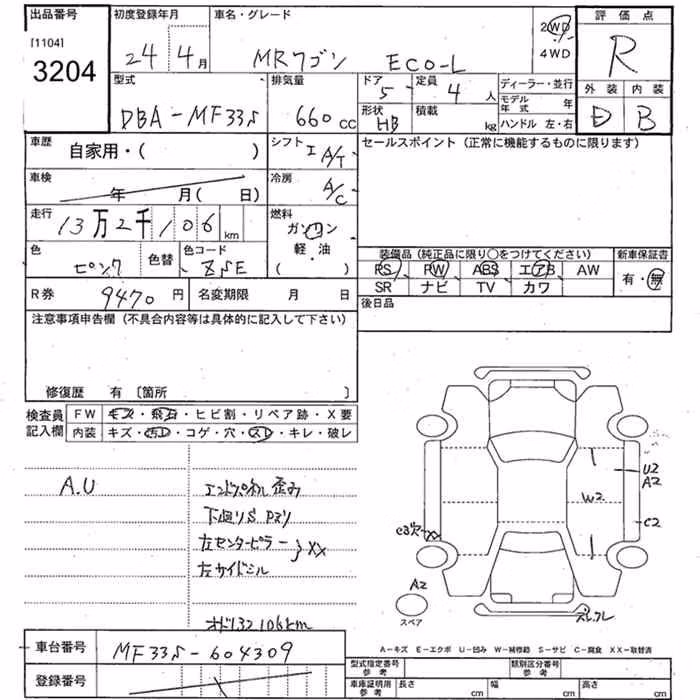 出品番号
[1104]
3204
初度登録年月
24年 4月
車名・グレード
MRワゴン ECO-L
2WD
4WD
評価点
R
外装 内装
D B
型式
DBA-MF33S
排気量
660 CC
ドア
5
形状
HB
定員
4人
積載
kg
ディーラー・並行
モデル年式 年
ハンドル 左・右
車歴
自家用・( )
シフト
I A/T
セールスポイント (正常に機能するものに限ります)
車検
年 月( 日)
冷房
A/C
走行
13万2千106km
燃料
ガソリン
軽・油
( )
色
ピンク
色替
色コード
ZSE
装備品 (純正品に限り○をつけてください)
PS PW ABS エアB AW
SR ナビ TV カワ
新車保証書
有・無
R券 9470円
名変期限 月 日
後日品
注意事項申告欄 (不具合内容等は具体的に記入して下さい)
修復歴 有 〔箇所 〕
検査員記入欄
FW キズ・飛石・ヒビ割・リペア跡・X要
内装 キズ・汚レ・コゲ・穴・スレ・キレ・破レ
A.U
エンドパネル歪み
下廻りS
左センターピラー
左サイドシル
XX
オド132106km
U2
A2
W2
C2
XX
A2
スペア
A-キズ E-エクボ U-凹み W-補修跡 S-サビ C-腐食 XX-取替済
車台番号 MF33S-604309
登録番号
型式指定番号 参考
類別区分番号 参考
車庫証明用 参考 長さ cm 幅 cm 高さ cm